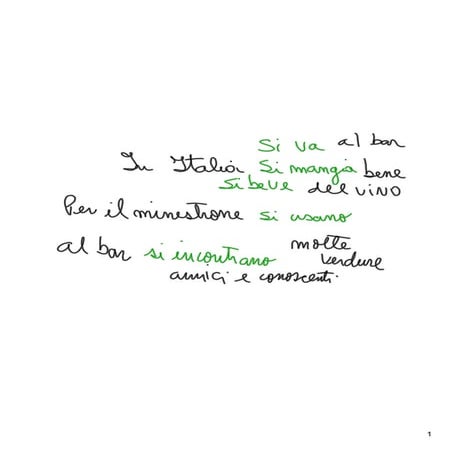 si va al bar
In Italia si mangia bene
si beve del vino
Per il minestrone si usano
molte
al bar si incontrano verdure
amici e conoscenti.
1